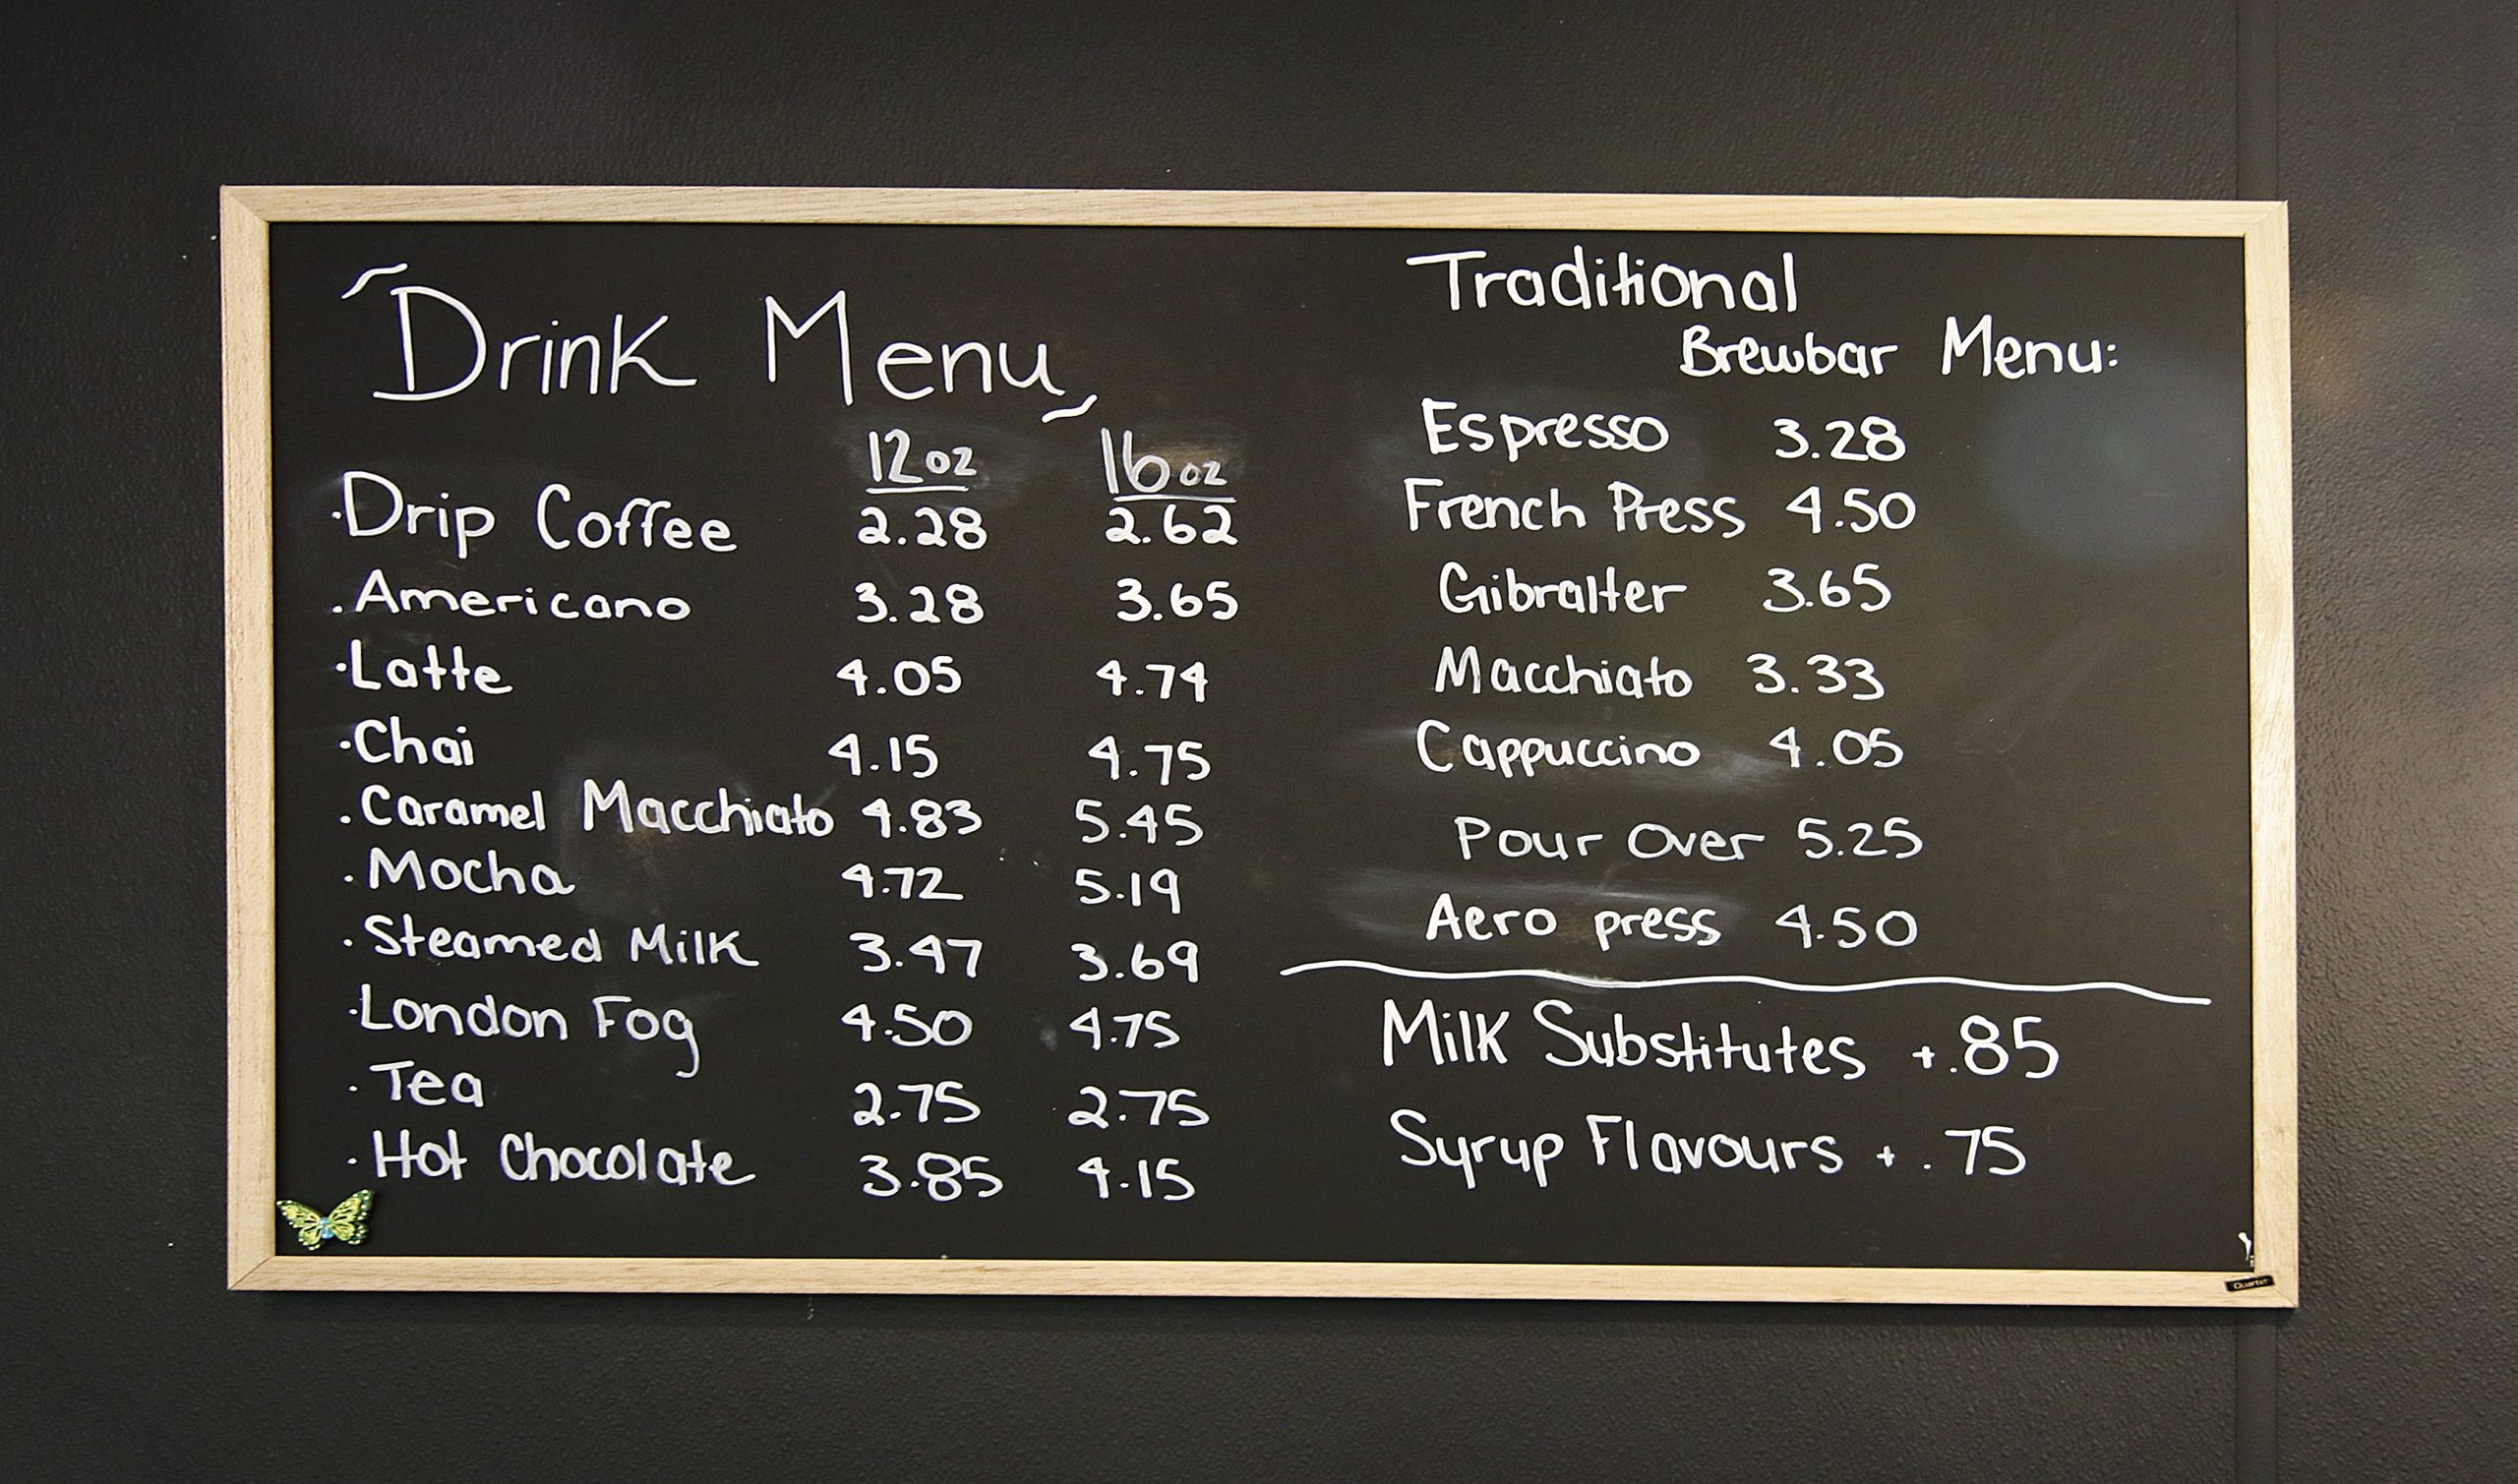 Drink Menu
12oz 16oz
·Drip Coffee 2.28 2.62
·Americano 3.28 3.65
·Latte 4.05 4.74
·Chai 4.15 4.75
·Caramel Macchiato 4.83 5.45
·Mocha 4.72 5.19
·Steamed Milk 3.47 3.69
·London Fog 4.50 4.75
·Tea 2.75 2.75
·Hot Chocolate 3.85 4.15
Traditional
Brewbar Menu:
Espresso 3.28
French Press 4.50
Gibralter 3.65
Macchiato 3.33
Cappuccino 4.05
Pour Over 5.25
Aero press 4.50
Milk Substitutes +.85
Syrup Flavours +.75
Quartet